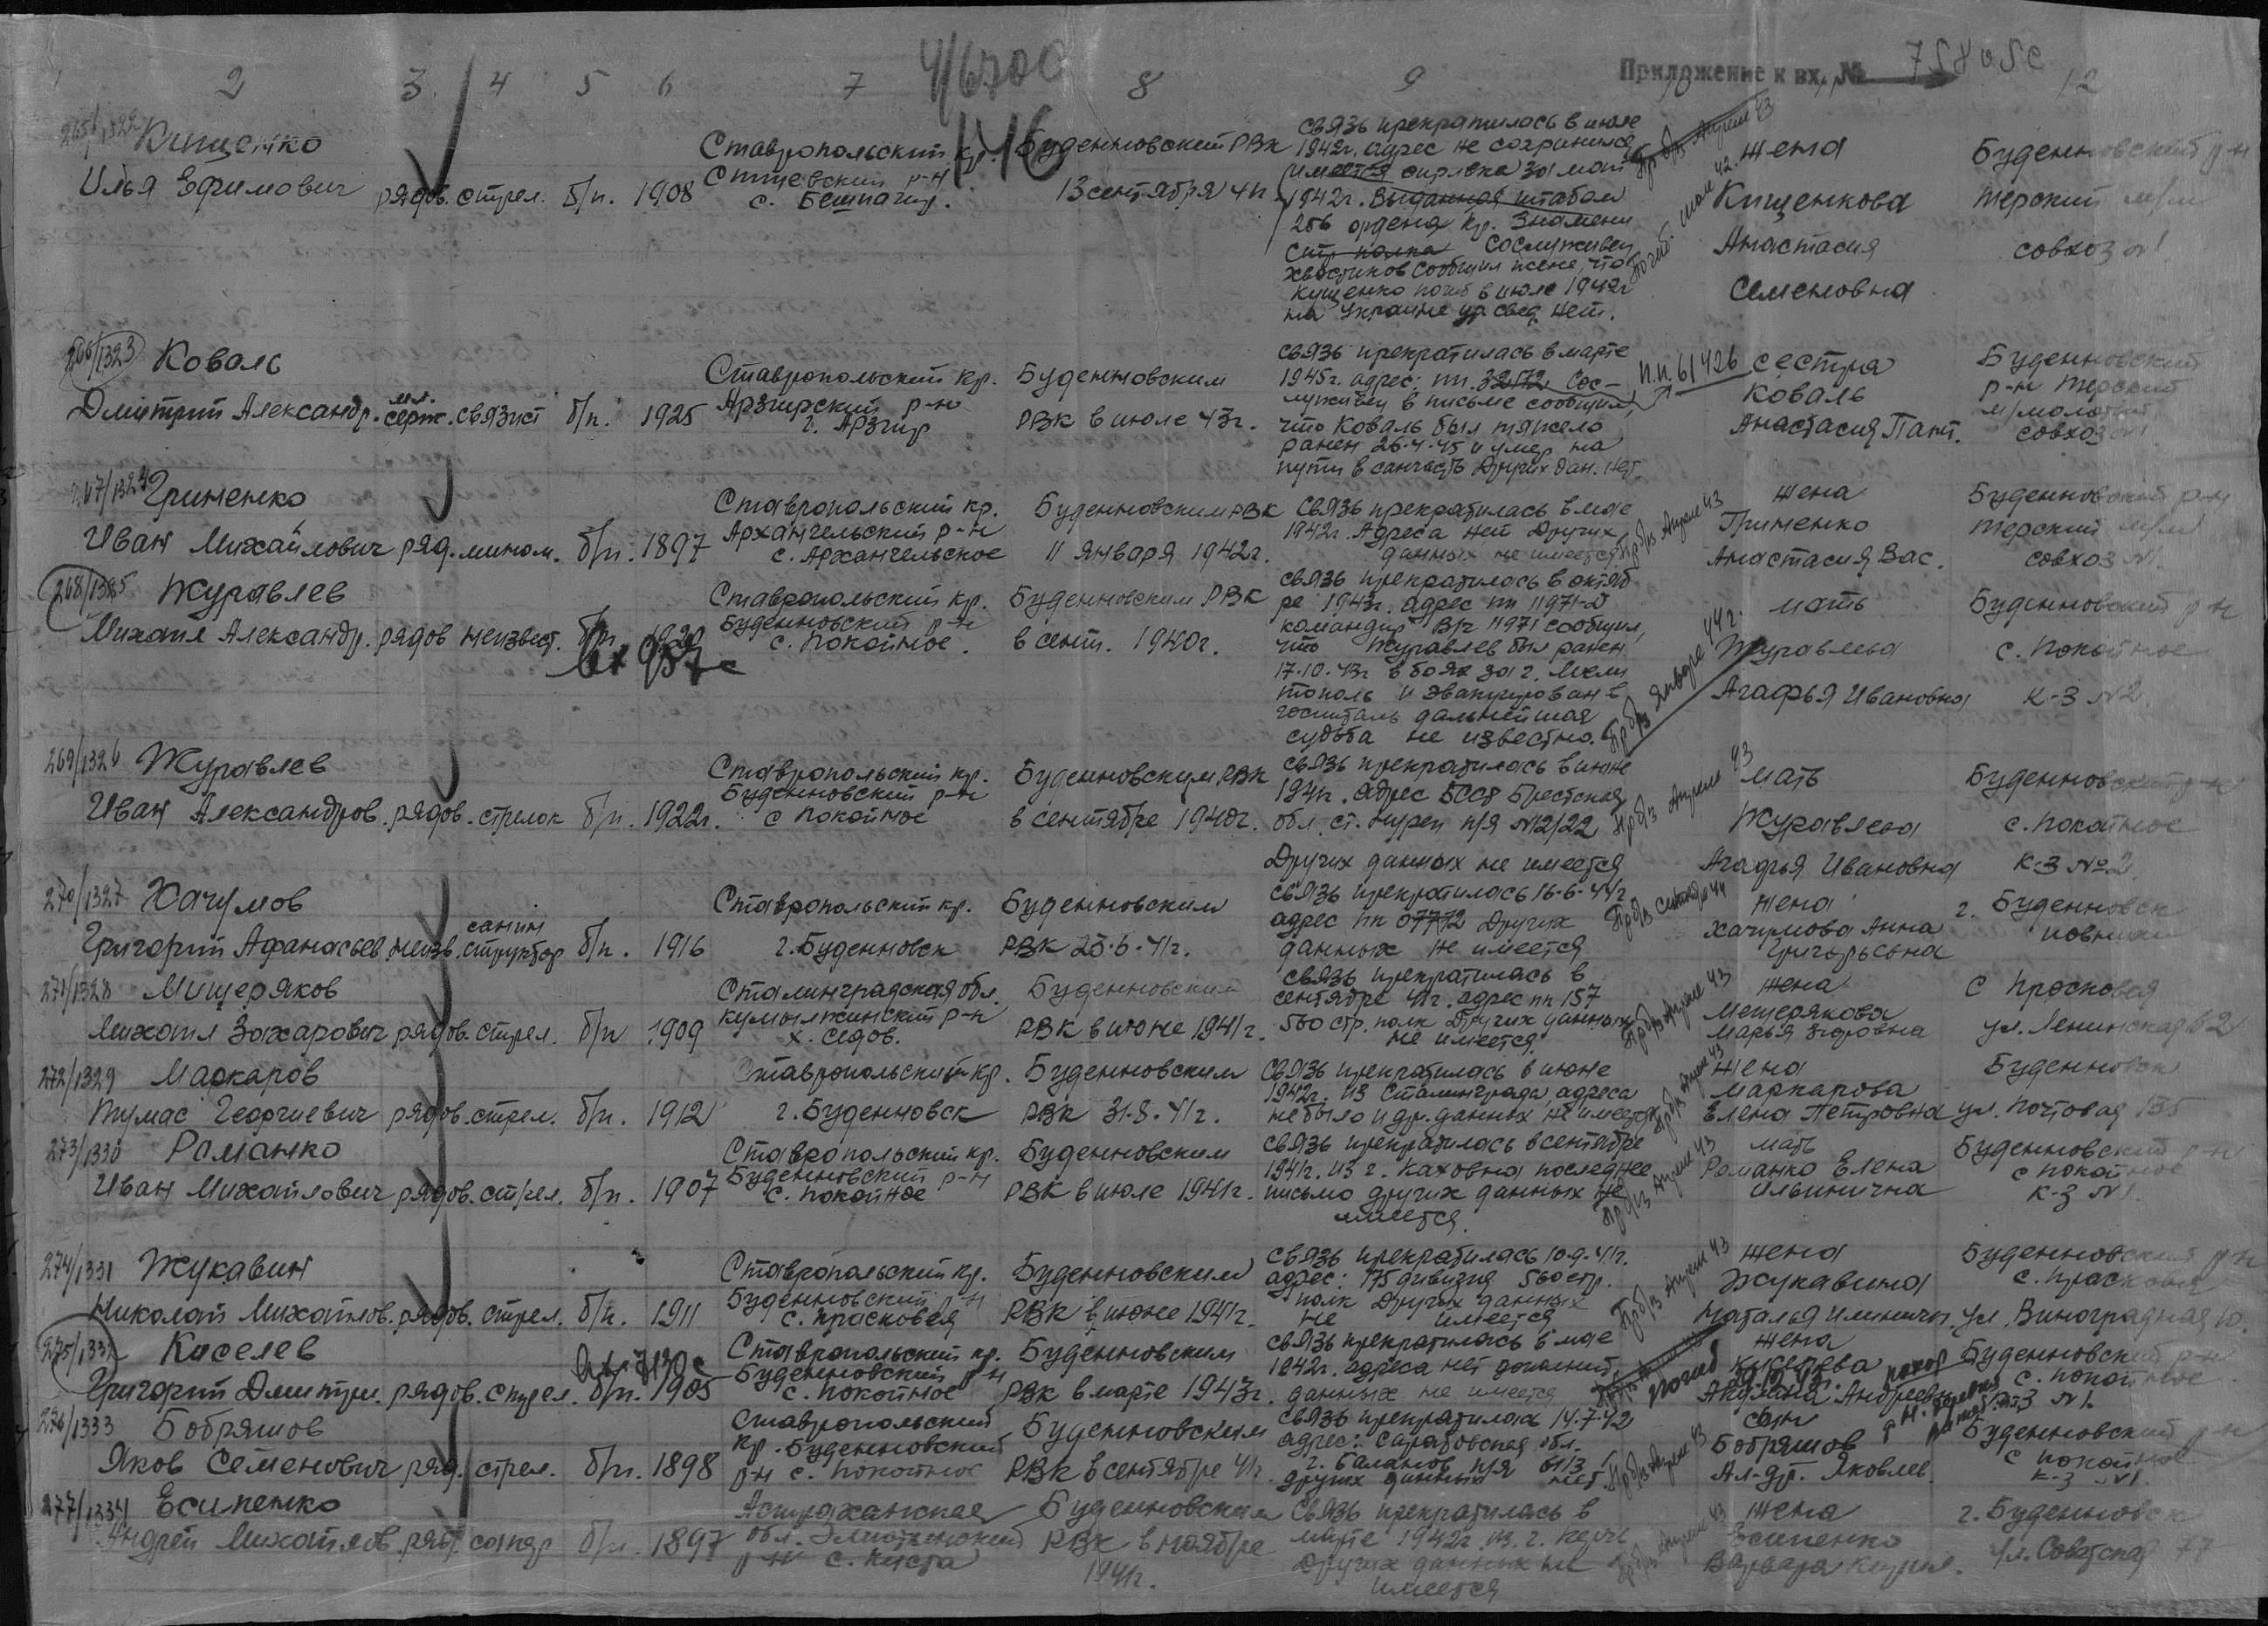 4670с
Приложение к вх. № 75805с
2 3 4 5 6 7 8 9 10 12
265/1322 Кищенко
Илья Ефимович рядов. стрел. б/п. 1908
Ставропольский кр.
р-н
с. Бешпагир.
Буденновский РВК
13 сентября 41г.
связь прекратилась в июле
1942г. адрес не сохранился
имеется справка за май
1942г. Выданная штабом
256 ордена Кр. Знамени
Стр полка Сослуживец
Хвостиков сообщил жене, что
Кущенко погиб в июле 1942г
на Украине др свед. нет.
Пр б/з Апреле 43
жена
Кищенкова
Анастасия
Семеновна
Буденновский р-н
Терский м/м
совхоз №1
266/1323 Коваль
Дмитрий Александр. мл. серж. связист б/п. 1925
Ставропольский кр.
Арзгирский р-н
г. Арзгир
Буденновским
РВК в июле 43г.
связь прекратилась в марте
1945г. адрес: пп. 32172 Сос-
луживец в письме сообщил,
что Коваль был тяжело
ранен 26.4.45 и умер на
пути в санчасть Других дан. нет.
п.п. 61426
сестра
Коваль
Анастасия Пант.
Буденновский
р-н Терский
совхоз №1
267/1324 Гриненко
Иван Михайлович ряд. мином. б/п. 1897
Ставропольский кр.
Архангельский р-н
с. Архангельское
Буденновским РВК
11 января 1942г.
связь прекратилась в мае
1942г. Адреса нет Других
данных не имеется.
Пр б/з Апреле 43
жена
Гриненко
Анастасия Вас.
Буденновский р-н
Терский м/м
совхоз №1.
268/1325 Журавлев
Михаил Александр. рядов неизвест. б/п. 1920
Ставропольский кр.
Буденновский р-н
с. Покойное.
Буденновским РВК
в сент. 1940г.
связь прекратилась в октяб
ре 1943г. адрес пп 11971-Д
командир в/ч 11971 сообщил,
что Журавлев был ранен
17.10.43 в боях за г. Мели
тополь и эвакуирован в
госпиталь дальнейшая
судьба не известна.
Пр б/з Январе 44г.
мать
Журавлева
Агафья Ивановна
Буденновский р-н
с. Покойное
к-з №2.
269/1326 Журавлев
Иван Александров. рядов. стрелок б/п. 1922г.
Ставропольский кр.
Буденновский р-н
с Покойное
Буденновским РВК
в сентябре 1940г.
связь прекратилась в июне
1941г. адрес БССР Брестская
обл. ст. п/я №12/22
Других данных не имеется
Пр б/з Апреле 43
мать
Журавлева
Агафья Ивановна
Буденновский р-н
с. Покойное
к-з №2.
270/1327 Хачумов
Григорий Афанасьев. неизв. санинструктор б/п. 1916
Ставропольский кр.
г. Буденновск
Буденновским
РВК 25.6.41г.
связь прекратилась 16.6.44г
адрес пп 07772 Других
данных не имеется
Пр б/з Сентябре 44
жена
Хачумова Анна
Григорьевна
г. Буденновск
271/1328 Мищеряков
Михаил Захарович рядов. стрел. б/п 1909
Сталинградская обл.
Кумылженский р-н
х. Седов.
Буденновский
РВК в июне 1941г.
связь прекратилась в
сентябре 41г. адрес пп 157
560 стр. полк Других данных
не имеется.
Пр б/з Апреле 43
жена
Мещерякова
Марья
с Прасковея
ул. Ленинская 62
272/1329 Маркаров
Тумас Георгиевич рядов. стрел. б/п. 1912
Ставропольский кр.
г. Буденновск
Буденновским
РВК 31.8.41г.
связь прекратилась в июне
1942г. из Сталинграда адреса
не было и др. данных не имеется
Пр б/з Апреле 43
жена
Маркарова
Елена Петровна
Буденновск
ул. Почтовая 135
273/1330 Романко
Иван Михайлович рядов. стрел. б/п. 1907
Ставропольский кр.
Буденновский р-н
с. Покойное
Буденновским
РВК в июле 1941г.
связь прекратилась в сентябре
1941г. из г. Каховка последнее
письмо других данных не
имеется.
Пр б/з Апреле 43
мать
Романко Елена
Ильинична
Буденновский р-н
с Покойное
к-з №1.
274/1331 Жукавин
Николай Михайлов. рядов. стрел. б/п. 1911
Ставропольский кр.
Буденновский р-н
с. Прасковея
Буденновским
РВК в июне 1941г.
связь прекратилась 10.9.41г.
адрес: 175 дивизия 560 стр.
полк Других данных
не имеется
Пр б/з Апреле 43
жена
Жукавина
Наталья Илинич.
Буденновский р-н
с. Прасковея
ул. Виноградная 10.
275/1332 Киселев
Григорий Дмитри. рядов. стрел. б/п. 1905
Ставропольский кр.
Буденновский р-н
с. Покойное
Буденновским
РВК в марте 1943г.
связь прекратилась в мае
1942г. адреса нет
данных не имеется
погиб
жена
Киселева
Андреевна
Буденновский р-н
с. Покойное
к-з №1.
276/1333 Бобряшов
Яков Семенович ряд. стрел. б/п. 1898
Ставропольский
кр. Буденновский
р-н с. Покойное
Буденновским
РВК в сентябре 41г.
связь прекратилась 14.7.42
адрес: Саратовская обл.
г. Балашов п/я 61/3
других данных нет.
Пр б/з Апреле 43
сын
Бобряшов
Ал-др. Яковлев.
Буденновский р-н
с Покойное
к-з №1.
277/1334 Есипенко
Андрей Михайлов. ряд. сапер б/п. 1897
Астраханская
обл. р-н с. Киста
Буденновским
РВК в ноябре
1941г.
связь прекратилась в
марте 1942г. из г. Керчь
Других данных не
имеется
Пр б/з Апреле 43
жена
Есипенко
Варвара Кирил.
г. Буденновск
ул. Советская 77